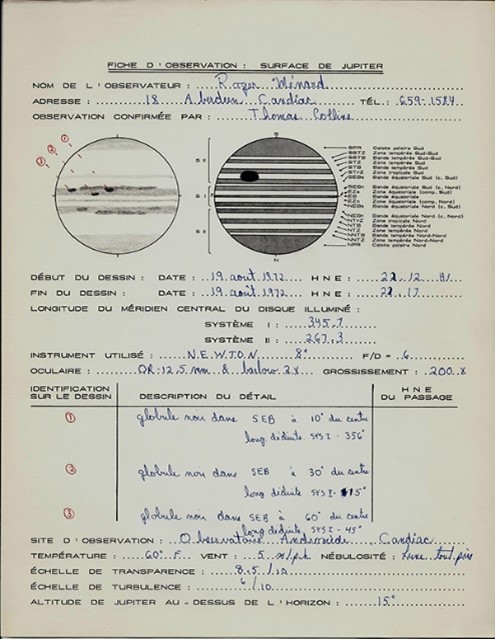 FICHE D'OBSERVATION : SURFACE DE JUPITER
NOM DE L'OBSERVATEUR : Roger Ménard
ADRESSE : 18 Aberdeen Candiac TÉL.: 659-1584
OBSERVATION CONFIRMÉE PAR : Thomas Collins
3 2 1
S II
S I
S II
S
N
SPR Calotte polaire Sud
SSTZ Zone tempérée Sud-Sud
SSTB Bande tempérée Sud-Sud
STZ Zone tempérée Sud
STB Bande tempérée Sud
STrZ Zone tropicale Sud
SEBs Bande équatoriale Sud (c. Sud)
SEBn Bande équatoriale Sud (c. Nord)
EZs Zone équatoriale (comp. Sud)
EB Bande équatoriale
EZn Zone équatoriale (comp. Nord)
NEBs Bande équatoriale Nord (c. Sud)
NEBn Bande équatoriale Nord (c. Nord)
NTrZ Zone tropicale Nord
NTB Bande tempérée Nord
NTZ Zone tempérée Nord
NNTB Bande tempérée Nord-Nord
NNTZ Zone tempérée Nord-Nord
NPR Calotte polaire Nord
DÉBUT DU DESSIN : DATE : 19 aout 1972 HNE : 22.12
FIN DU DESSIN : DATE : 19 août 1972 HNE : 22.17
LONGITUDE DU MÉRIDIEN CENTRAL DU DISQUE ILLUMINÉ :
SYSTÈME I : 345.7
SYSTÈME II : 267.3
INSTRUMENT UTILISÉ : NEWTON 8" F/D = 6
OCULAIRE : OR-12.5 mm & barlow 2X GROSSISSEMENT : 200 X
IDENTIFICATION SUR LE DESSIN
DESCRIPTION DU DÉTAIL
HNE DU PASSAGE
1 globule noir dans SEB à 10° du centre
long. déduite SYS I - 356°
2 globule noir dans SEB à 30° du centre
long déduite SYS I - 15°
3 globule noir dans SEB à 60° du centre
long déduite SYS I - 45°
SITE D'OBSERVATION : Observatoire Andromède Candiac
TEMPÉRATURE : 60° F VENT : 5 NÉBULOSITÉ : Lune tout près
ÉCHELLE DE TRANSPARENCE : 8.5/10
ÉCHELLE DE TURBULENCE : 6/10
ALTITUDE DE JUPITER AU-DESSUS DE L'HORIZON : 15°